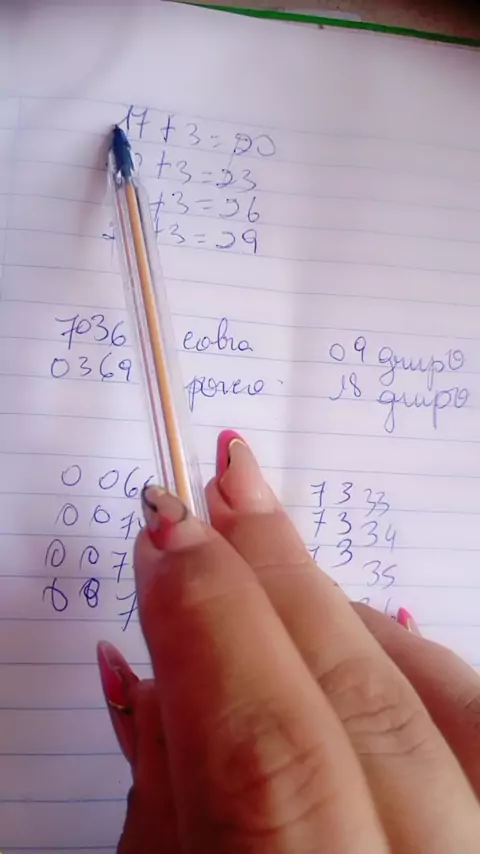 17 + 3 = 20
+ 3 = 23
+ 3 = 26
+ 3 = 29
7036 cobra 09 grupo
0369 porco 18 grupo
0 0 6 7 3 33
0 0 7 7 3 34
0 0 7 3 35
0 0 7